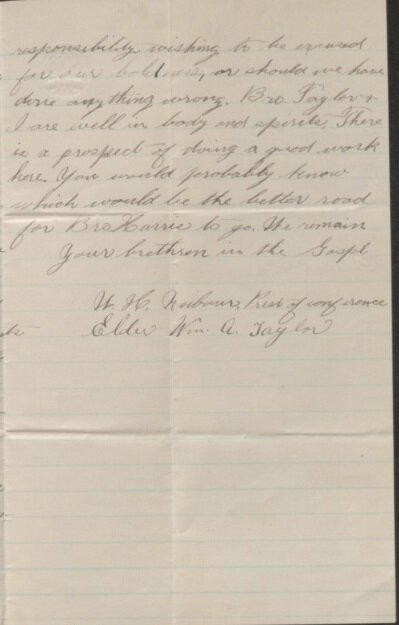 responsibility wishing to be excused
for our boldness, or should we have
done anything wrong. Bro. Taylor &
I are well in body and spirits. There
is a prospect of doing a good work
here. You would probably know
which would be the better road
for Bro Harris to go. We remain
Your brethren in the Gospl
W. H. Prest of conference
Elder Wm. A. Taylor